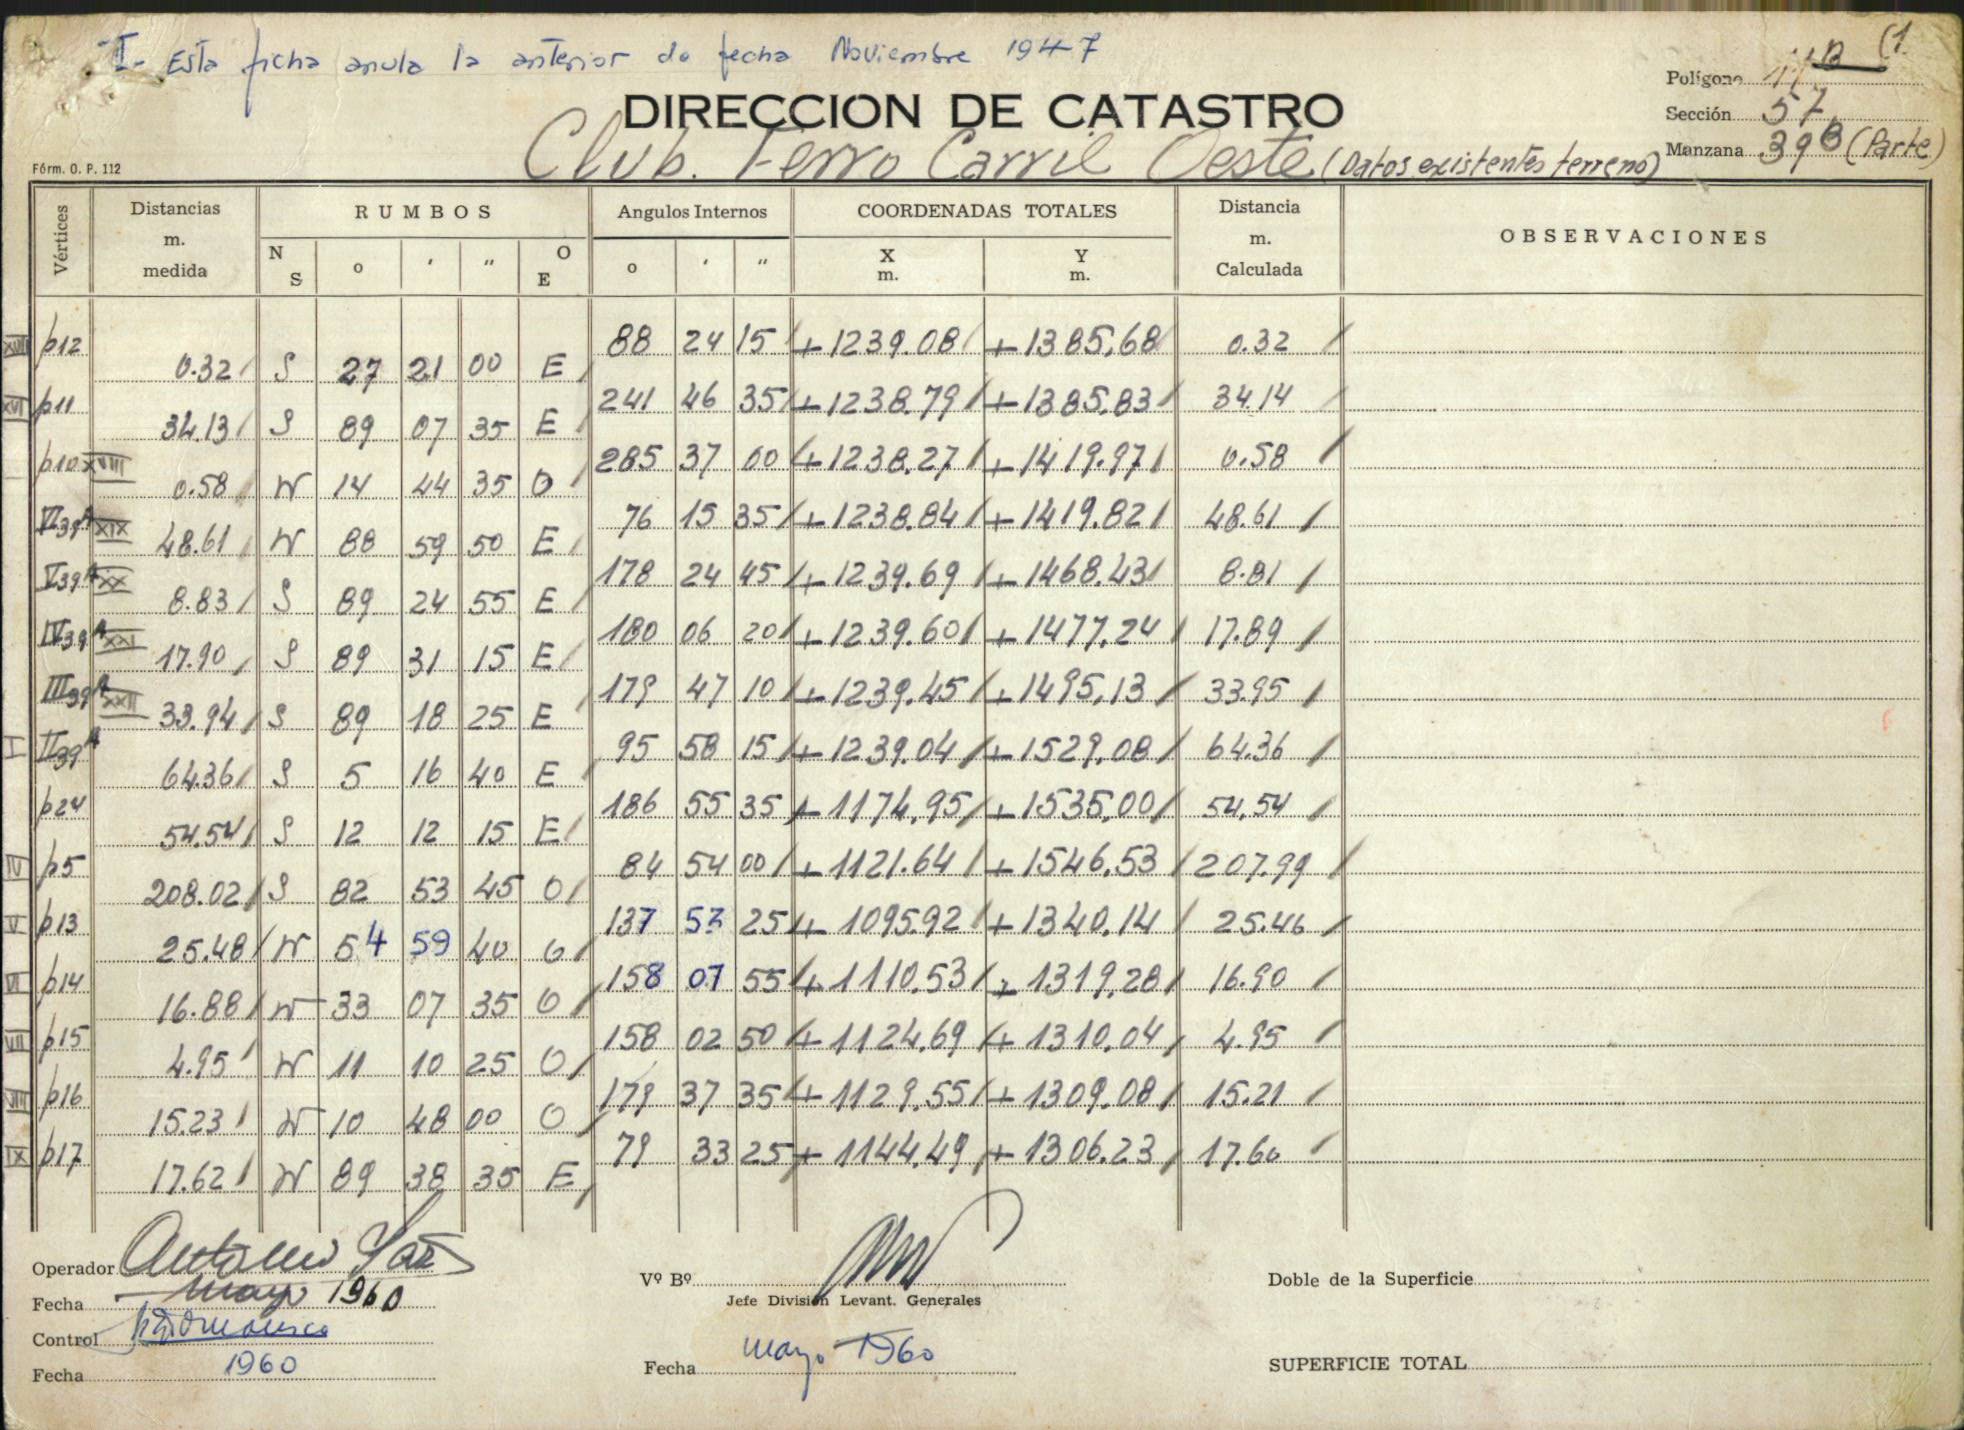 I - Esta ficha anula la anterior de fecha Noviembre 1947
(1
Polígono 11B
DIRECCION DE CATASTRO
Sección 57
Club. Ferro Carril Oeste (Datos existentes terreno)
Manzana 39B (Parte)
Fórm. O. P. 112
Vértices Distancias m. medida RUMBOS Angulos Internos COORDENADAS TOTALES Distancia m. Calculada OBSERVACIONES
N S o ' " O E o ' " X m. Y m.
p12 88 24 15 +1239.08 +1385,68 0.32
0.32 S 27 21 00 E
XVI p11 241 46 35 +1238.79 +1385.83 34.14
34.13 S 89 07 35 E
p10 XVIII 285 37 00 +1238.27 +1419.97 0.58
0.58 N 14 44 35 O
VI39A XIX 76 15 35 +1238.84 +1419.82 48.61
48.61 N 88 59 50 E
V39A XX 178 24 45 +1239.69 +1468.43 8.81
8.83 S 89 24 55 E
IV39A XXI 180 06 20 +1239.60 +1477.24 17.89
17.90 S 89 31 15 E
III39A XXII 179 47 10 +1239.45 +1495,13 33.95
33.94 S 89 18 25 E
I II39A 95 58 15 +1239.04 +1529.08 64.36
64.36 S 5 16 40 E
p24 186 55 35 +1174,95 +1535,00 54,54
54.54 S 12 12 15 E
IV p5 84 54 00 +1121.64 +1546,53 207.99
208.02 S 82 53 45 O
V p13 137 53 25 +1095.92 +1340,14 25.46
25.48 N 54 59 40 O
VI p14 158 07 55 +1110.53 +1319,28 16.90
16.88 N 33 07 35 O
VII p15 158 02 50 +1124.69 +1310,04 4.95
4.95 N 11 10 25 O
VIII p16 179 37 35 +1129.55 +1309.08 15.21
15.23 N 10 48 00 O
IX p17 79 33 25 +1144.49 +1306.23 17.60
17.62 N 89 38 35 E
Operador Antonio
Vº Bº
Doble de la Superficie
Fecha mayo 1960
Jefe División Levant. Generales
Control
Fecha 1960
Fecha mayo 1960
SUPERFICIE TOTAL